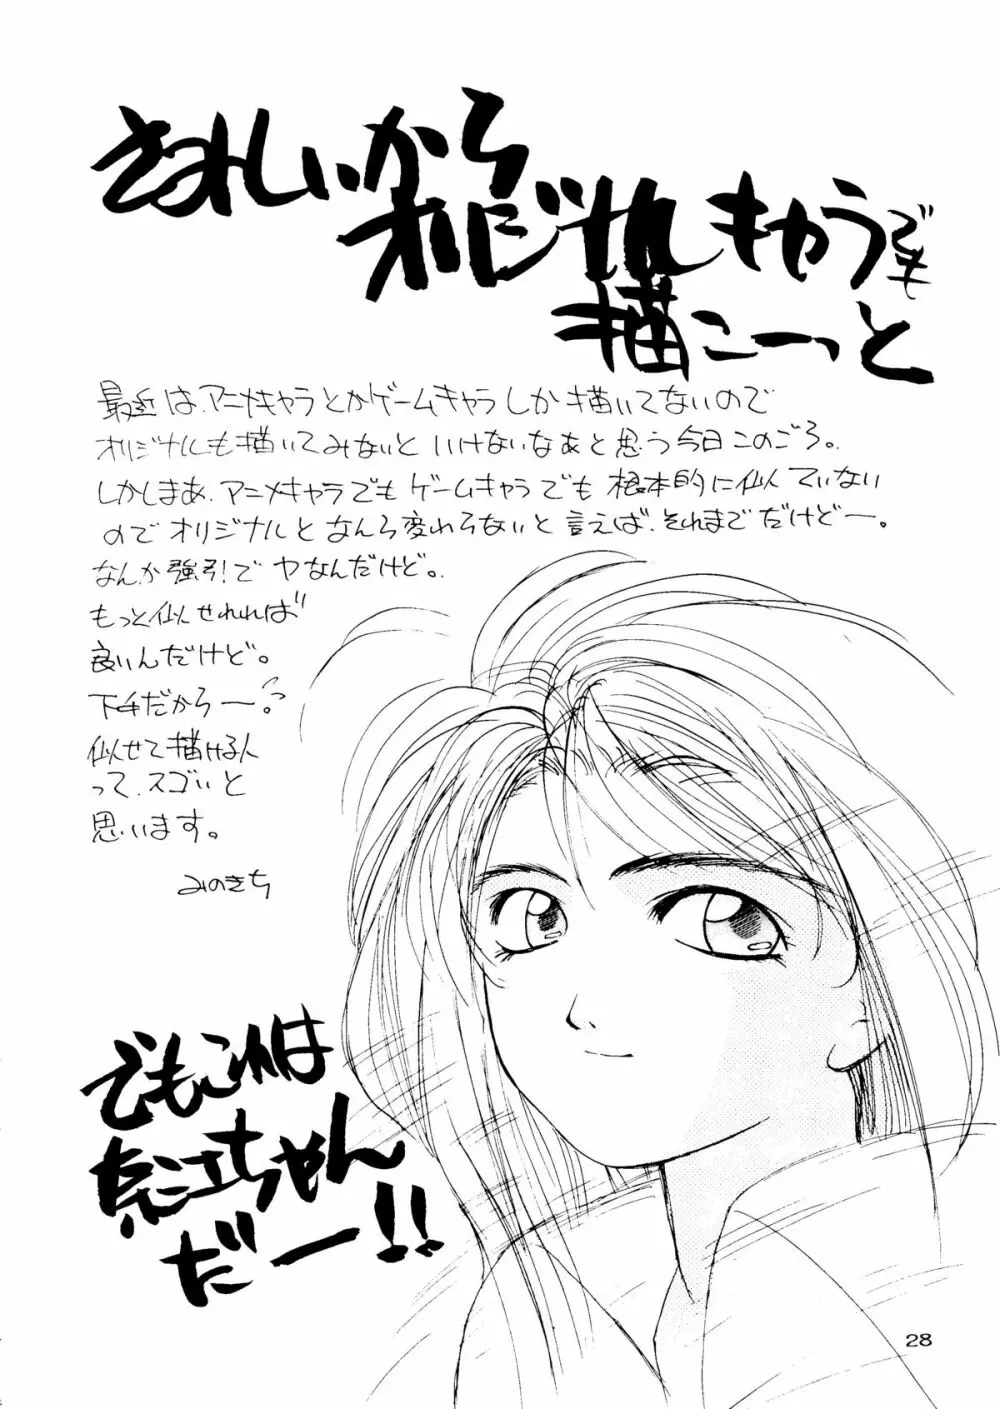 さみしいから
オリジナルキャラでも
描こーっと
最近は、アニメキャラとかゲームキャラしか描いてないので
オリジナルも描いてみないといけないなあと思う今日このごろ。
しかしまあ、アニメキャラでもゲームキャラでも根本的に似ていない
のでオリジナルとなんら変わらないと言えば、それまでだけどー。
なんか強引でヤなんだけど。
もっと似せれれば
良いんだけど。
下手だからー。
似せて描ける人
って、スゴいと
思います。
みのきち
でもこれは
ちゃん
だー!!
28